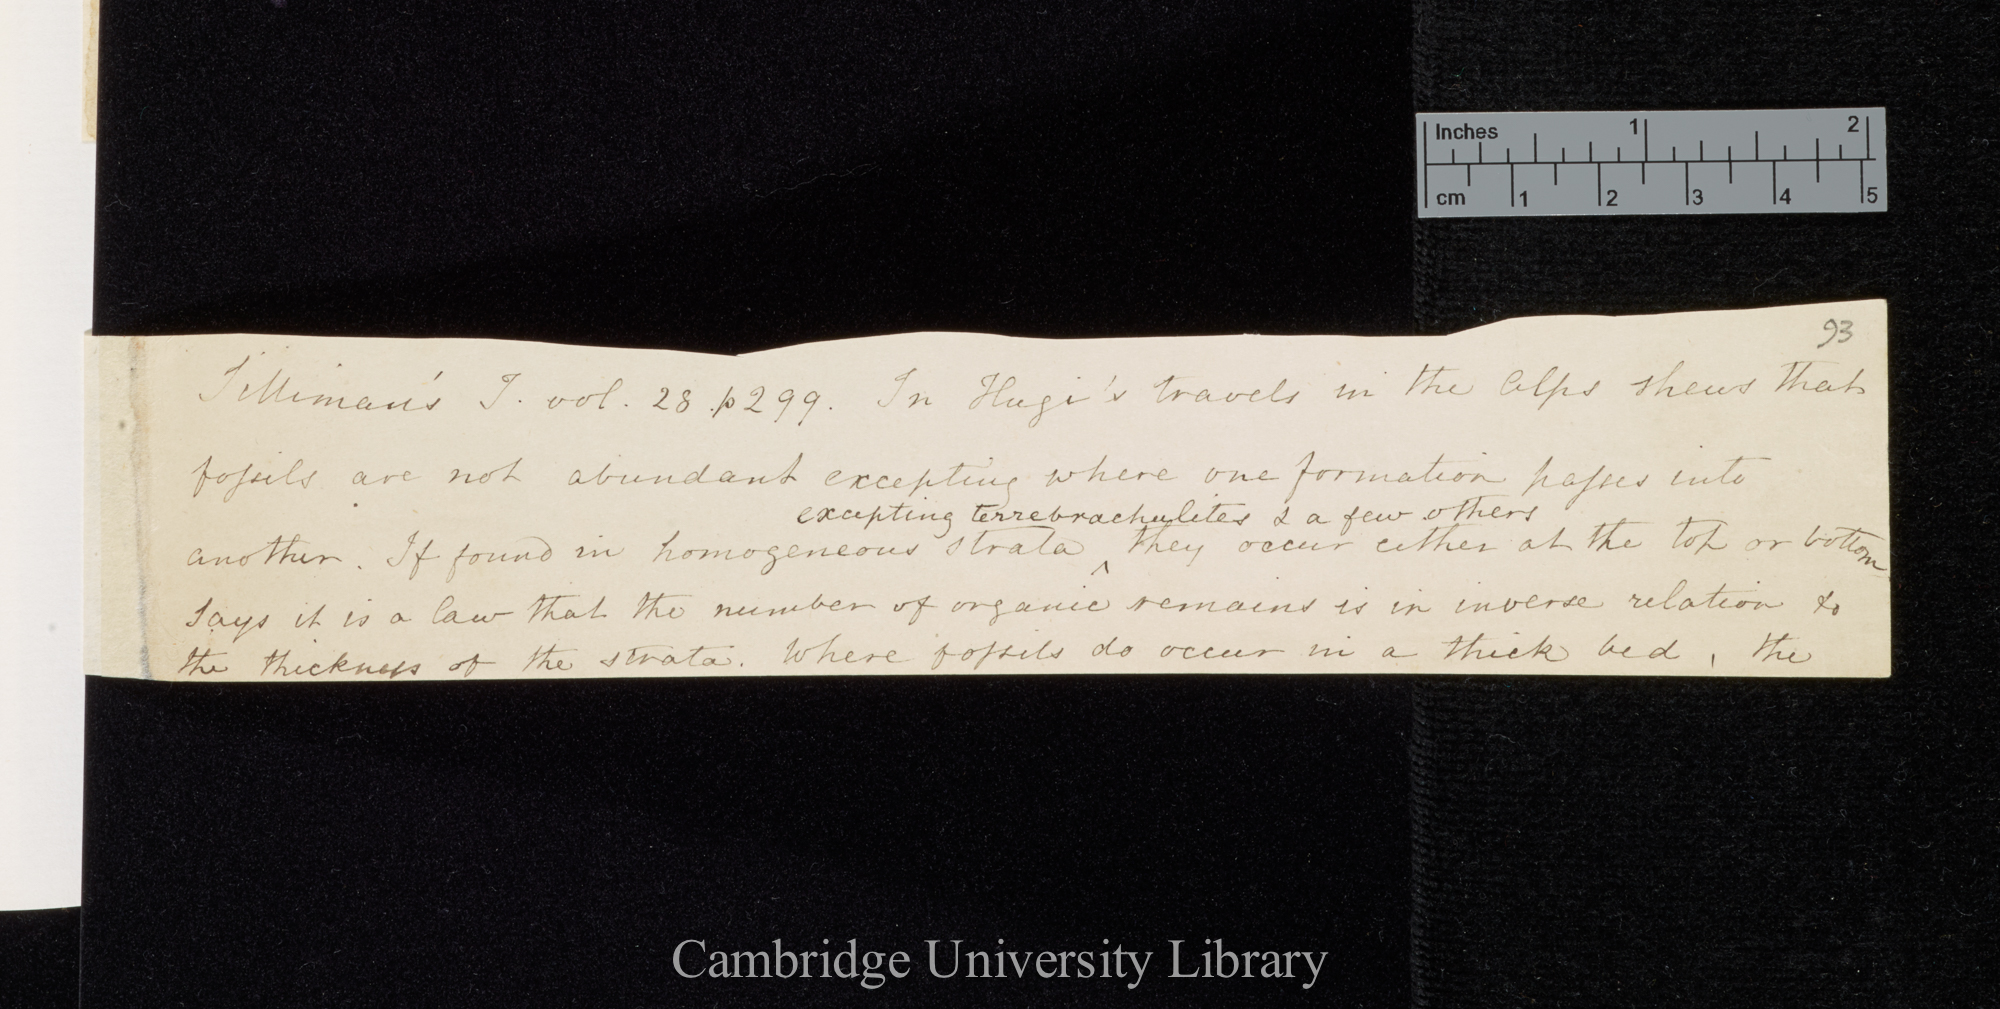 Inches 1 2
cm 1 2 3 4 5
93
Silliman's J. vol. 28. p299. In Hugi's travels in the Alps shews that
fossils are not abundant excepting where one formation passes into
excepting terrebrachulites & a few others
another. If found in homogeneous strata ^ they occur either at the top or bottom
says it is a law that the number of organic remains is in inverse relation to
the thickness of the strata. Where fossils do occur in a thick bed, the
Cambridge University Library